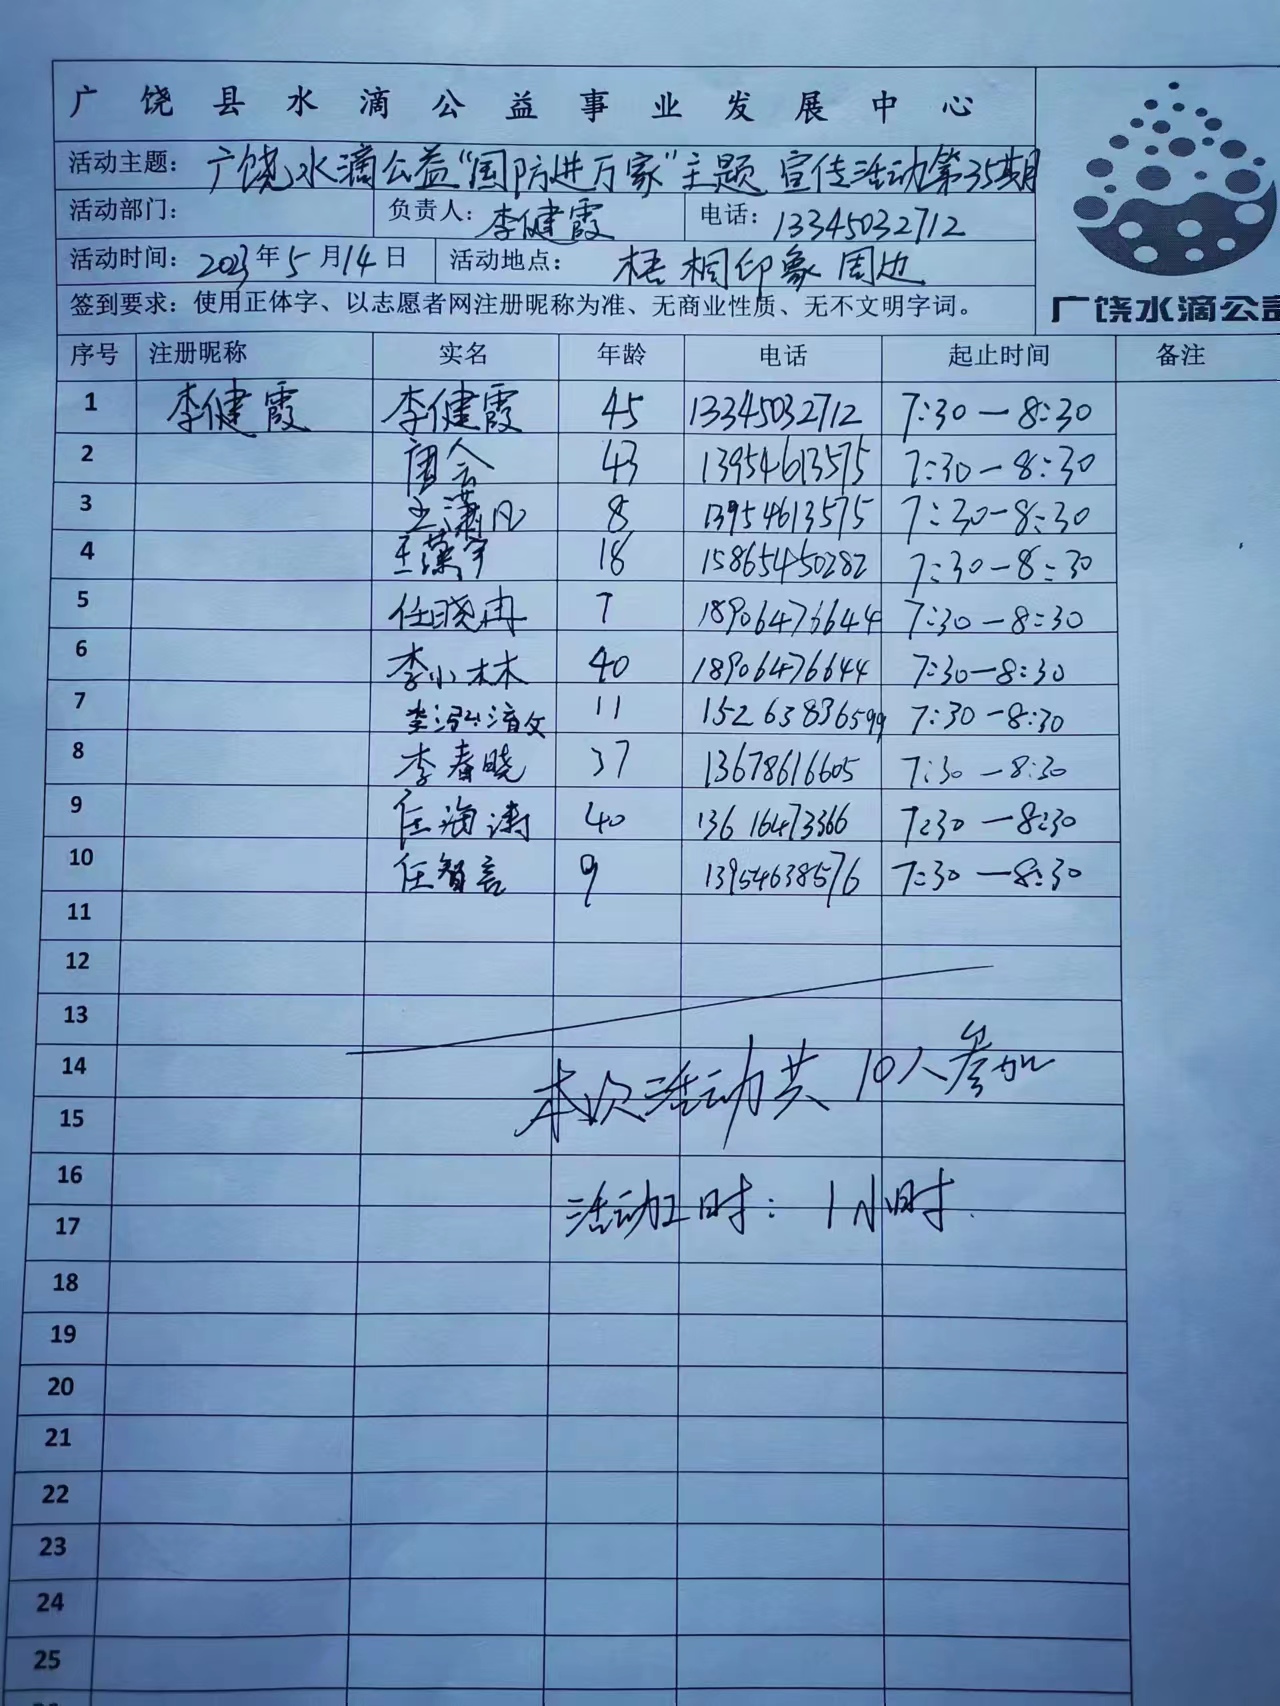 广饶县水滴公益事业发展中心
活动主题：广饶水滴公益“国防进万家”主题宣传活动第35期
活动部门： 负责人：李健霞 电话：13345032712
活动时间：2023年5月14日 活动地点：梧桐印象周边
签到要求：使用正体字、以志愿者网注册昵称为准、无商业性质、无不文明字词。
广饶水滴公益
序号 注册昵称 实名 年龄 电话 起止时间 备注
1 李健霞 李健霞 45 13345032712 7:30—8:30
2 43 13954613575 7:30—8:30
3 王潇凡 8 13954613575 7:30—8:30
4 18 15865450282 7:30—8:30
5 任晓冉 7 18906476644 7:30—8:30
6 李小林 40 18906476644 7:30—8:30
7 11 15263836599 7:30—8:30
8 李春晓 37 13678616605 7:30—8:30
9 任海涛 40 13616473366 7:30—8:30
10 任智言 9 13954638576 7:30—8:30
11
12
13
本次活动共10人参加
14
15
16
活动工时：1小时.
17
18
19
20
21
22
23
24
25